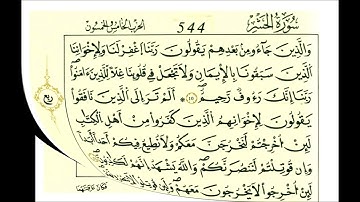 الحزب الخامس والخمسون 544 سورة الحشر
وَالَّذِينَ جَاءُو مِنْ بَعْدِهِمْ يَقُولُونَ رَبَّنَا اغْفِرْ لَنَا وَلِإِخْوَانِنَا
الَّذِينَ سَبَقُونَا بِالْإِيمَانِ وَلَا تَجْعَلْ فِي قُلُوبِنَا غِلًّا لِلَّذِينَ ءَامَنُوا
رَبَّنَا إِنَّكَ رَءُوفٌ رَحِيمٌ أَلَمْ تَرَ إِلَى الَّذِينَ نَافَقُوا
يَقُولُونَ لِإِخْوَانِهِمُ الَّذِينَ كَفَرُوا مِنْ أَهْلِ الْكِتَابِ
لَئِنْ أُخْرِجْتُمْ لَنَخْرُجَنَّ مَعَكُمْ وَلَا نُطِيعُ فِيكُمْ أَحَدًا أَبَدًا
وَإِنْ قُوتِلْتُمْ لَنَنْصُرَنَّكُمْ وَاللَّهُ يَشْهَدُ إِنَّهُمْ لَكَاذِبُونَ
لَئِنْ أُخْرِجُوا لَا يَخْرُجُونَ مَعَهُمْ وَلَئِنْ قُوتِلُوا لَا
ربع